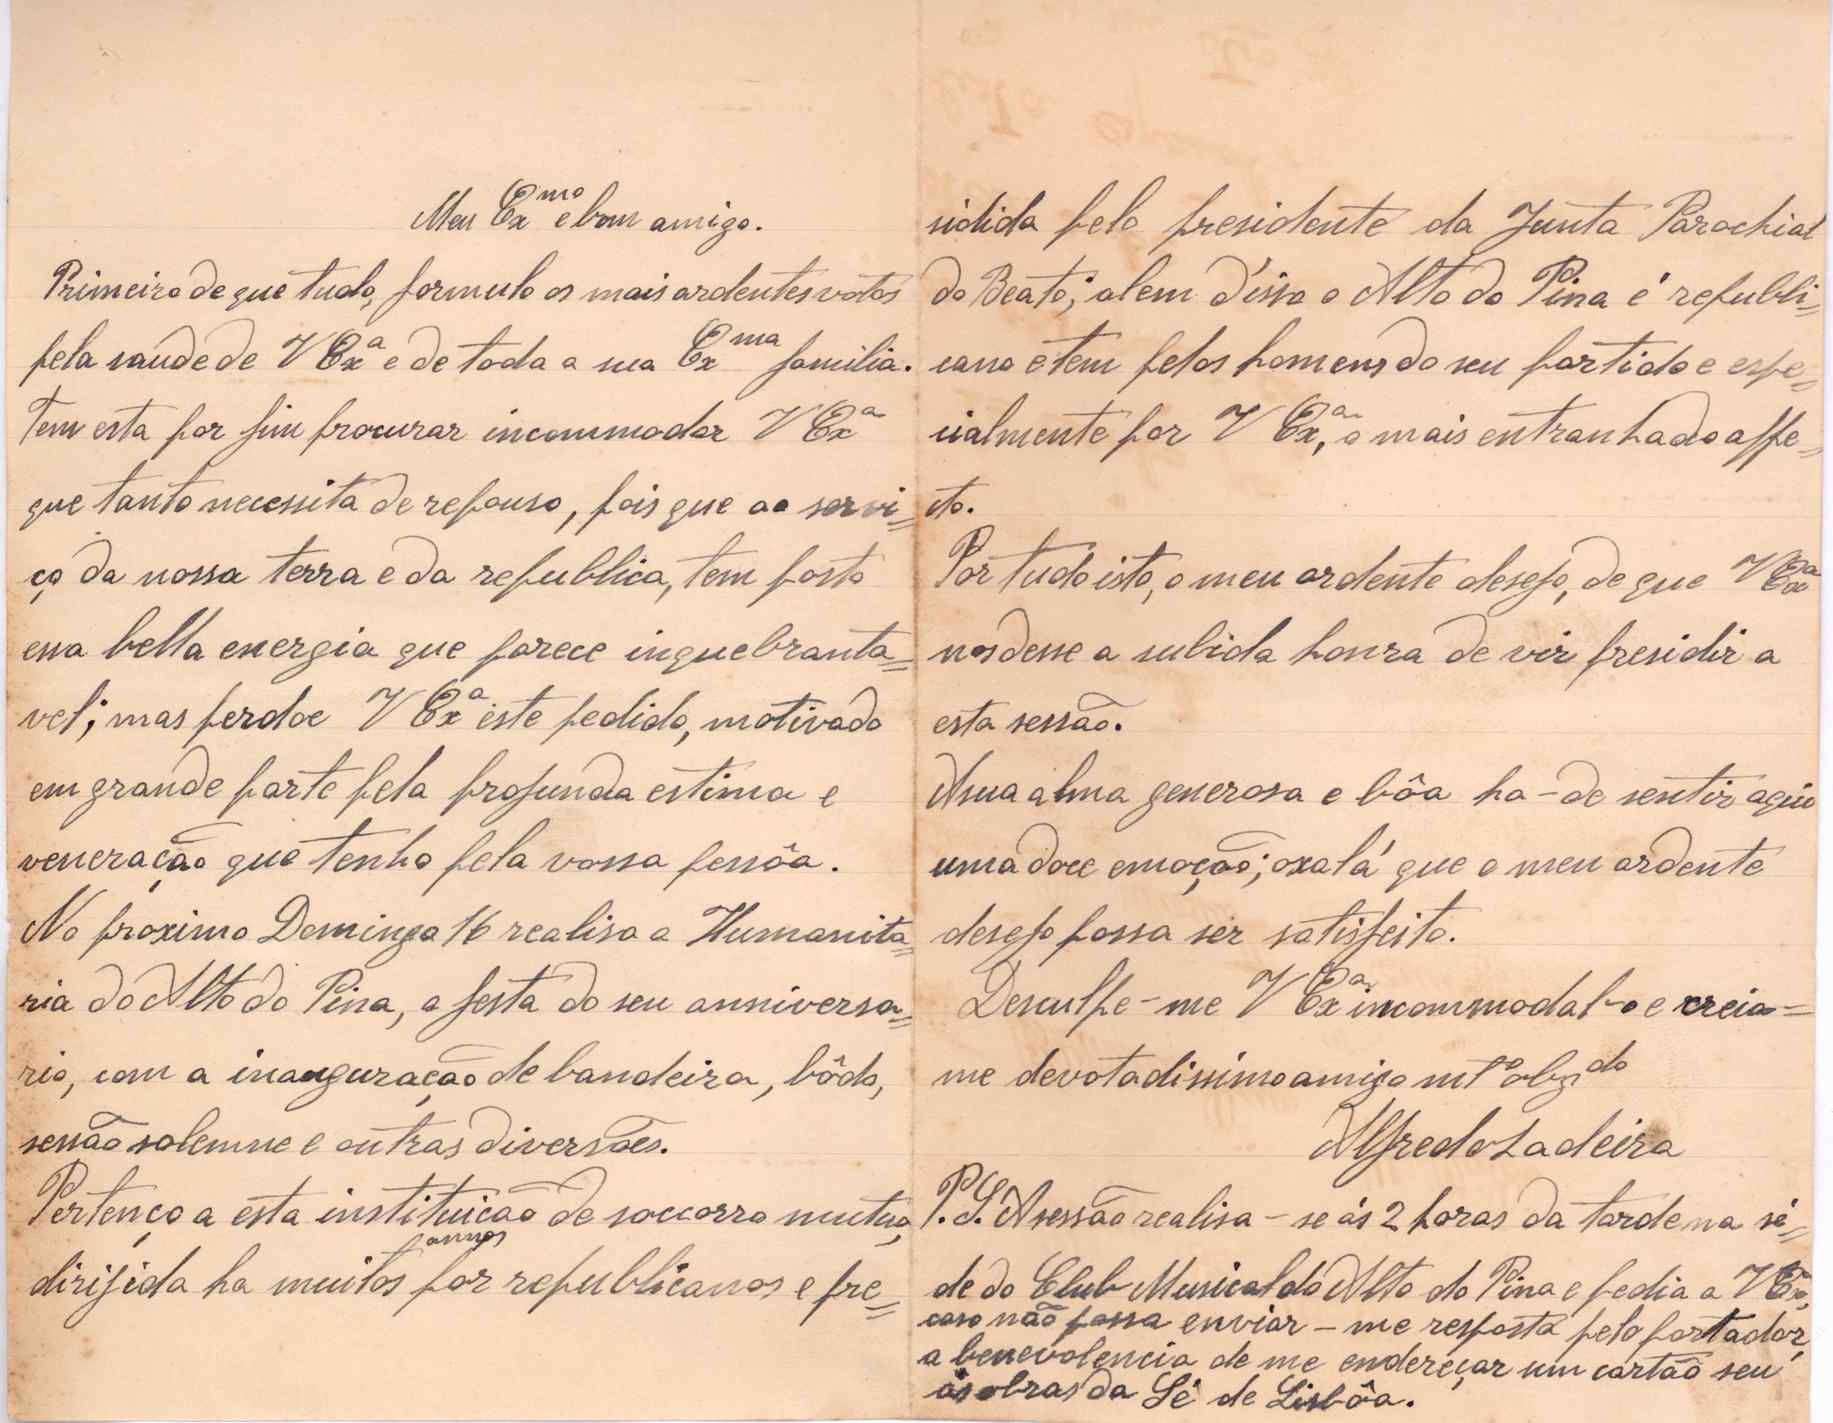 Meu Exmo e bom amigo.
Primeiro de que tudo, formulo os mais ardentes votos
pela saude de V Exa e de toda a sua Exma familia.
Tem esta por fim procurar incommodar V Exa
que tanto necessita de repouso, pois que ao servi=
ço da nossa terra e da republica, tem posto
essa bella energia que parece inquebranta=
vel; mas perdoe V Exa este pedido, motivado
em grande parte pela profunda estima e
veneração que tenho pela vossa pessôa.
No proximo Domingo 16 realisa a Humanita=
ria do Alto do Pina, a festa do seu anniversa=
rio, com a inauguração de bandeira, bôdo,
sessão solemne e outras diversões.
Pertenço a esta instituição de soccorro mutuo,
dirijida ha muitos annos por republicanos e pre=
sidida pelo presidente da Junta Parochial
do Beato; alem d'isso o Alto do Pina é republi=
cano e tem pelos homens do seu partido e espe=
cialmente por V Exa, o mais entranhado affe=
cto.
Por tudo isto, o meu ardente desejo, de que V Exa
nos desse a subida honra de vir presidir a
esta sessão.
A sua alma generosa e bôa ha-de sentir aqui
uma doce emoção; oxalá que o meu ardente
desejo possa ser satisfeito.
Desculpe-me V Exa incommodal-o e creia=
me devotadissimo amigo mto obgdo
Alfredo Ladeira
P.S. A sessão realisa-se ás 2 horas da tarde na sé=
de do Club Musical do Alto do Pina e pedia a V Exa,
caso não possa enviar-me resposta pelo portador,
a benevolencia de me endereçar um cartão seu
ás obras da Sé de Lisbôa.